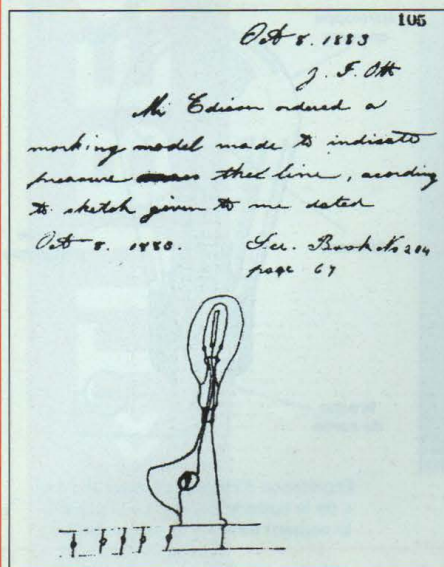 105
Oct 8. 1883
J. F. Ott
Mr Edison ordered a
working model made to indicate
preasure the line, acording
to sketch given to me dated
Oct 8. 1883.
See. Book No 204
page 67